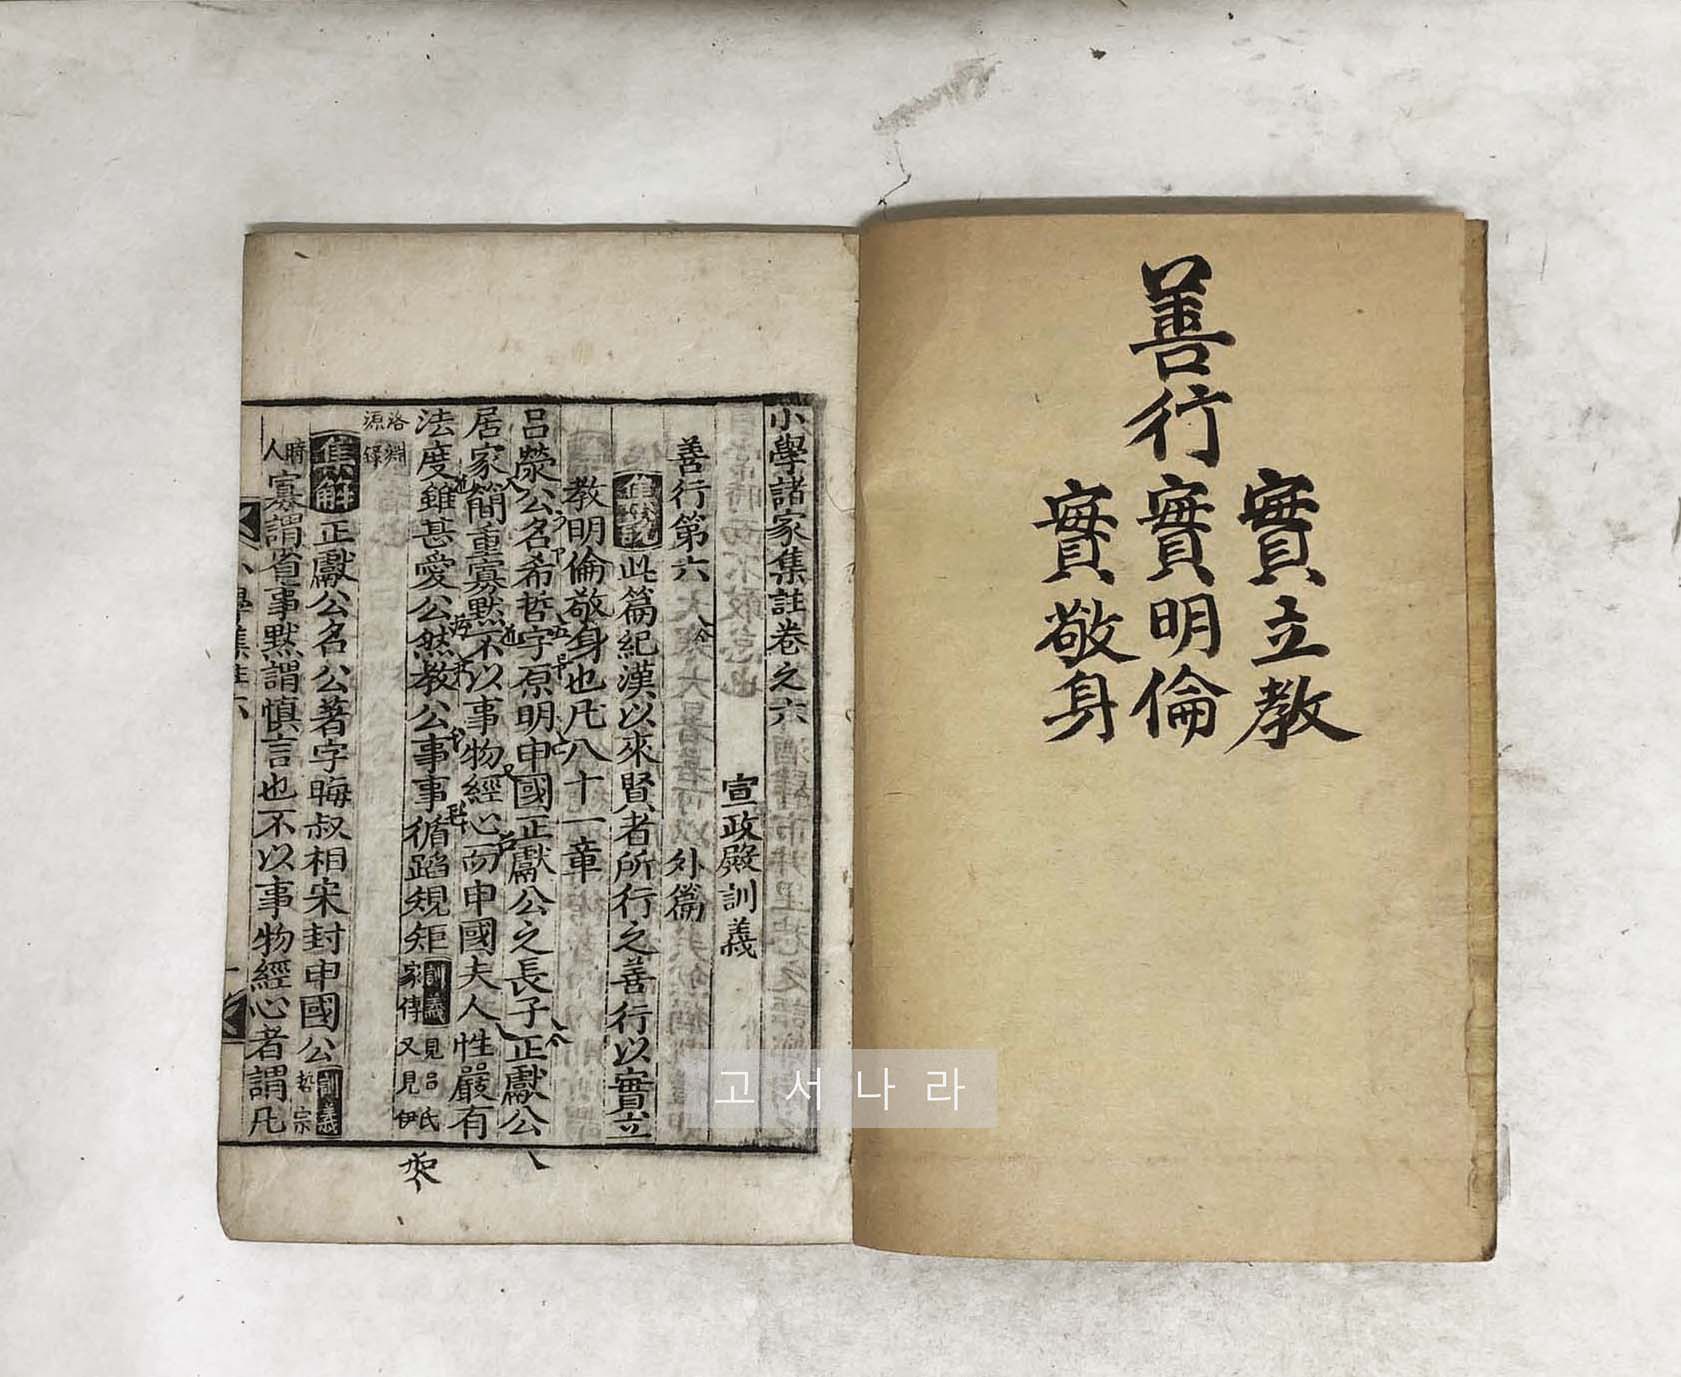 善行
實立教
實明倫
實敬身
小學諸家集註卷之六
宣政殿訓義
善行第六 外篇
集說 此篇紀漢以來賢者所行之善行以實立
教明倫敬身也凡八十一章
呂滎公名希哲字原明申國正獻公之長子正獻公
居家簡重寡默不以事物經心而申國夫人性嚴有
法度雖甚愛公然教公事事循蹈規矩 訓義 見呂氏
家傳又見伊
洛淵
源錄
集解 正獻公名公著字晦叔相宋封申國公 訓義 哲宗
時
人 寡謂省事默謂慎言也不以事物經心者謂凡
고서나라